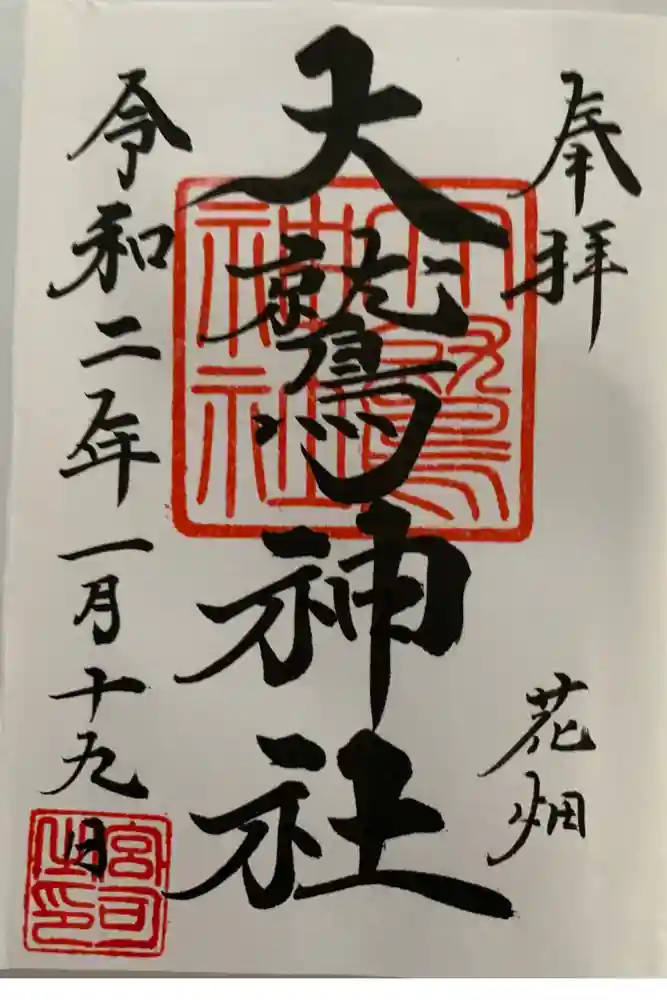 奉拝
花畑
大鷲神社
令和二年一月十九日
大鷲神社
宮司之印